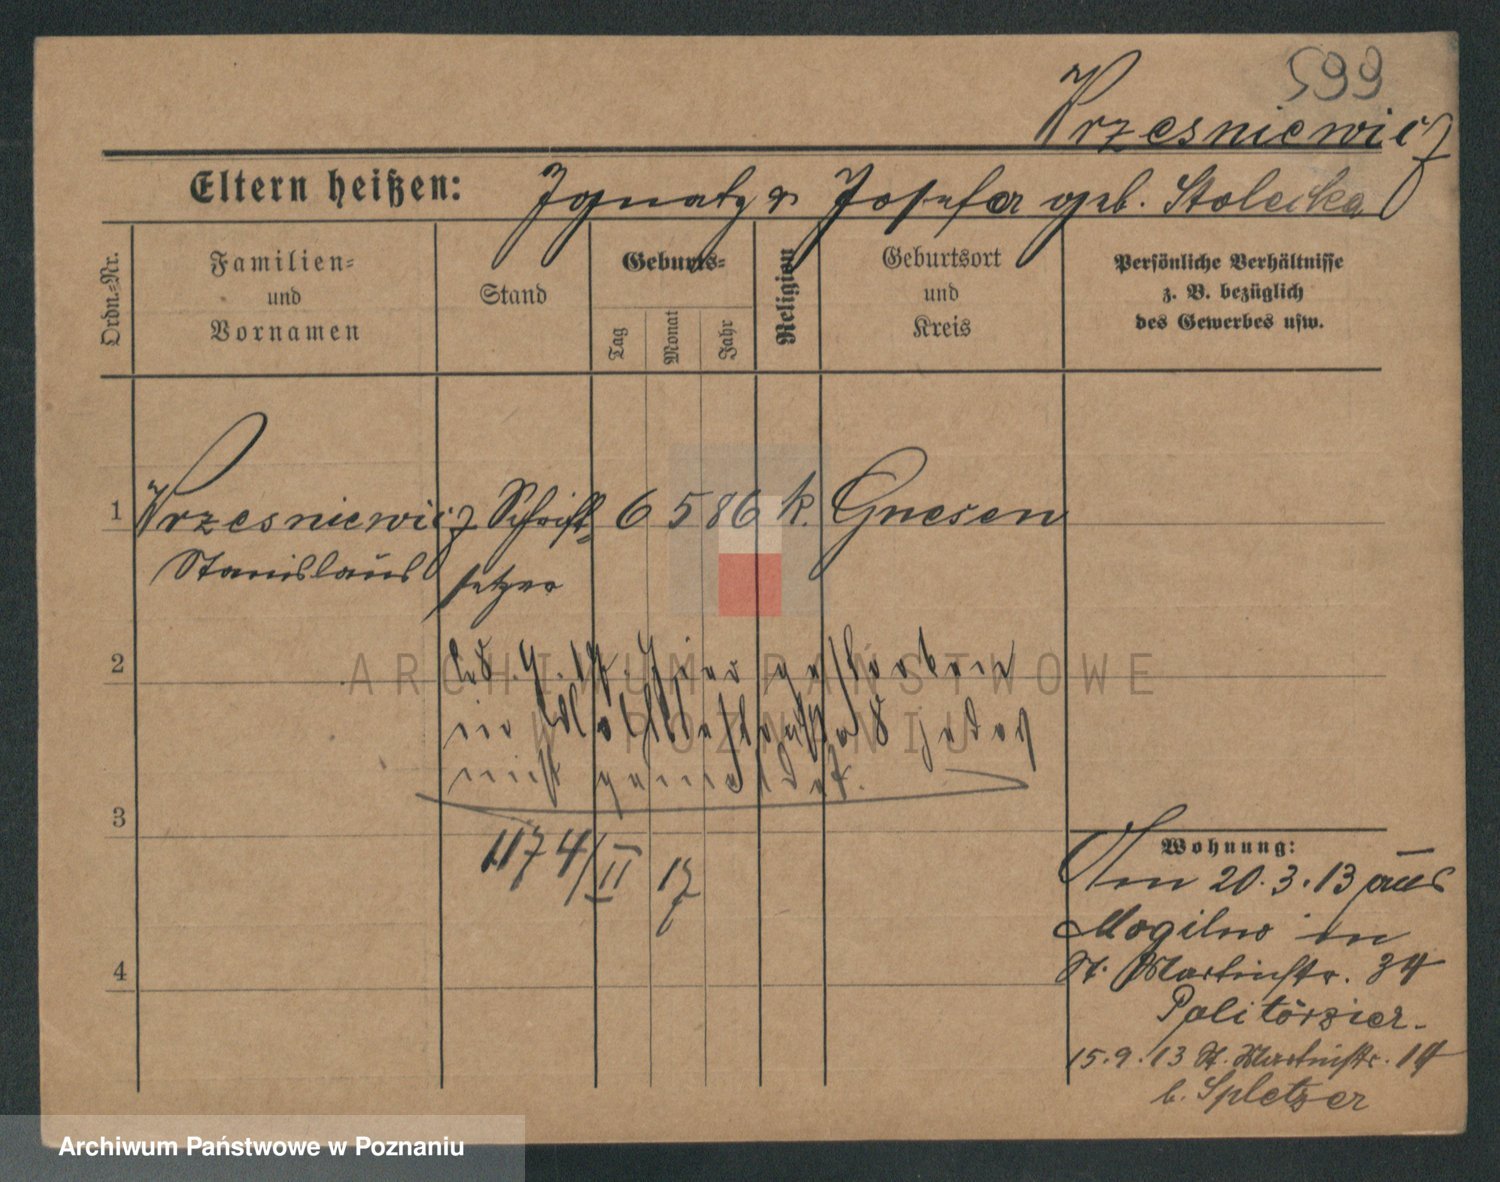 599
Wrzesniewicz
Eltern heißen: Ignatz & Josefa geb. Stolecka
Ordn.=Nr.
Familien=
und
Vornamen
Stand
Geburts=
Tag
Monat
Jahr
Religion
Geburtsort
und
Kreis
Persönliche Verhältnisse
z. B. bezüglich
des Gewerbes usw.
1 Wrzesniewicz Schrift= 6 5 86 k. Gnesen
Stanislaus setzer
2
hier gestorben
in jedoch
nicht gemeldet.
3
1174/II 17
4
Wohnung:
Von 20.3.13 aus
Mogilno in
St. Martinstr. 34
15.9.13 St. Martinstr. 14
b. Spletzer
ARCHIWUM PAŃSTWOWE
W POZNANIU
Archiwum Państwowe w Poznaniu